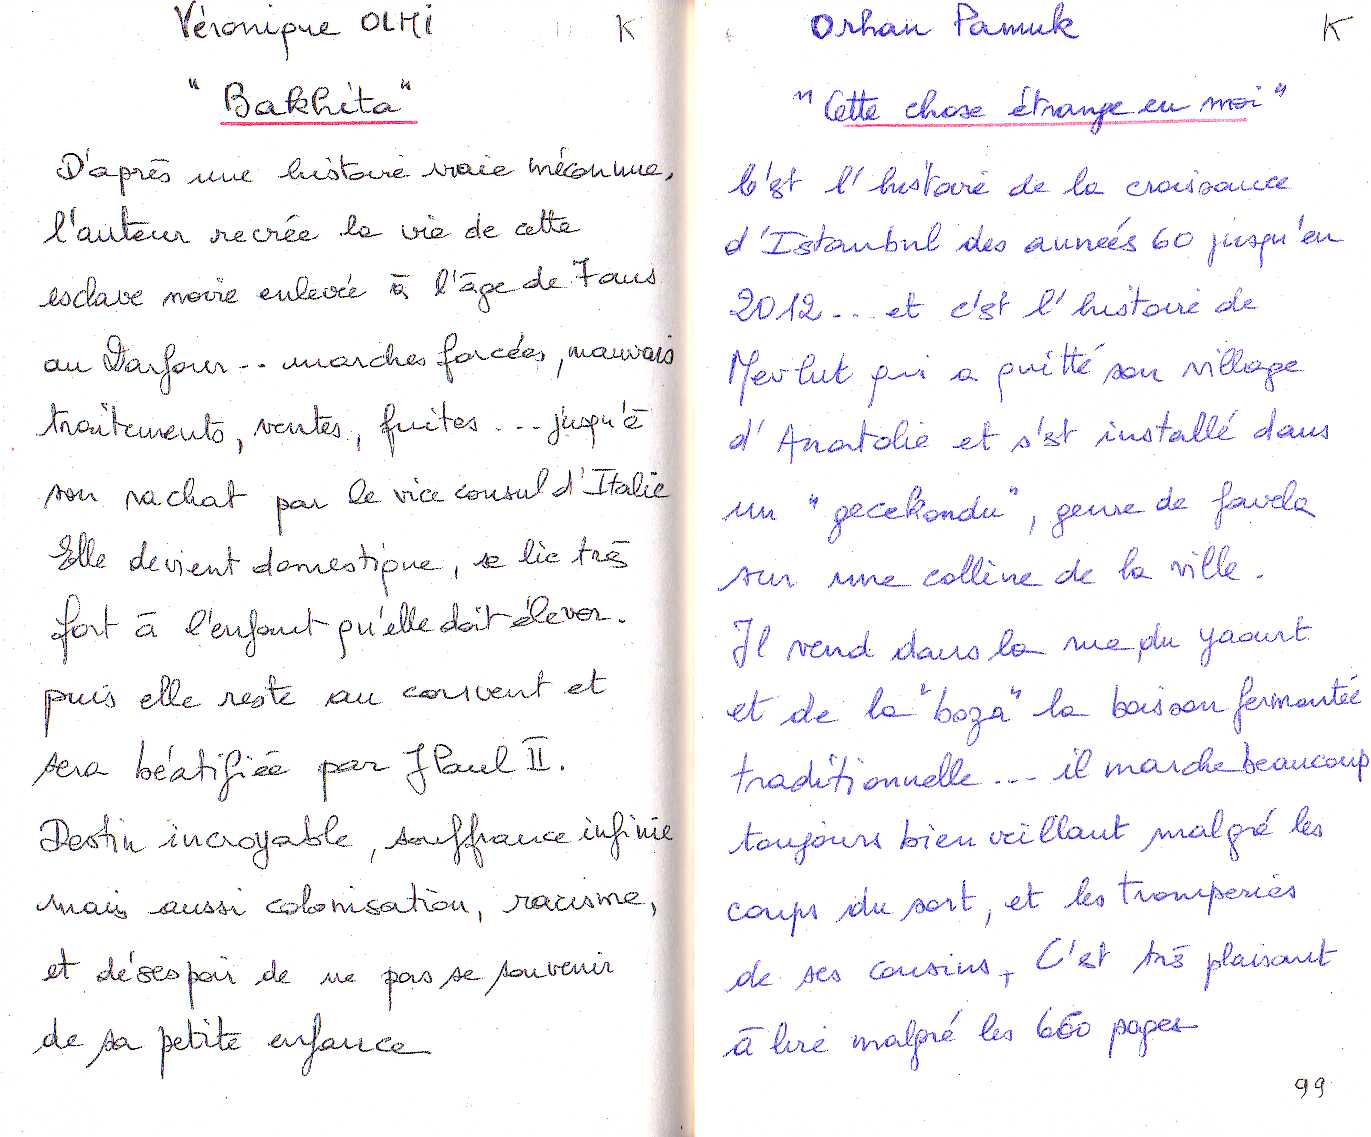 Véronique OLMI K
"Bakhita"
D'après une histoire vraie méconnue,
l'auteur recrée la vie de cette
esclave noire enlevée à l'âge de 7 ans
au Darfour... marches forcées, mauvais
traitements, ventes, fuites... jusqu'à
son rachat par le vice consul d'Italie
Elle devient domestique, se lie très
fort à l'enfant qu'elle doit élever.
puis elle reste au couvent et
sera béatifiée par J Paul II.
Destin incroyable, souffrance infinie
mais aussi colonisation, racisme,
et désespoir de ne pas se souvenir
de sa petite enfance
Orhan Pamuk K
"Cette chose étrange en moi"
C'est l'histoire de la croissance
d'Istanbul des années 60 jusqu'en
2012... et c'est l'histoire de
Mevlut qui a quitté son village
d'Anatolie et s'est installé dans
un "gecekondu", genre de favela
sur une colline de la ville.
Il vend dans la rue du yaourt
et de la "boza" la boisson fermentée
traditionnelle... il marche beaucoup
toujours bienveillant malgré les
coups du sort, et les tromperies
de ses cousins, C'est très plaisant
à lire malgré les 660 pages
99